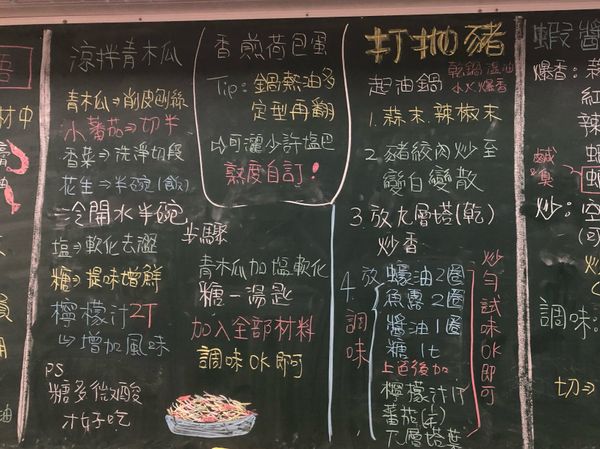 涼拌青木瓜
青木瓜⇒削皮刨絲
小蕃茄⇒切半
香菜⇒洗淨切段
花生⇒半碗(飲)
冷開水半碗
塩⇒軟化去澀
糖⇒提味增鮮
檸檬汁2T
⇒增加風味
PS
糖多微酸
才好吃
步驟
青木瓜加塩軟化
糖一湯匙
加入全部材料
調味OK即可
香煎荷包蛋
Tip:鍋熱油多
定型再翻
⇨可灑少許塩巴
熟度自訂!
打拋豬
起油鍋
乾鍋溫油
小火爆香
1.蒜末.辣椒末
2.豬絞肉炒至
變白變散
3.放九層塔(乾)
炒香
4.放調味
蠔油2圈
魚露2圈
醬油1圈
糖1t
上色後加
檸檬汁1T
蕃茄(¼)
九層塔葉
炒勻試味OK即可
蝦醬
爆香:
鹹臭
炒:
調味:
切⇒